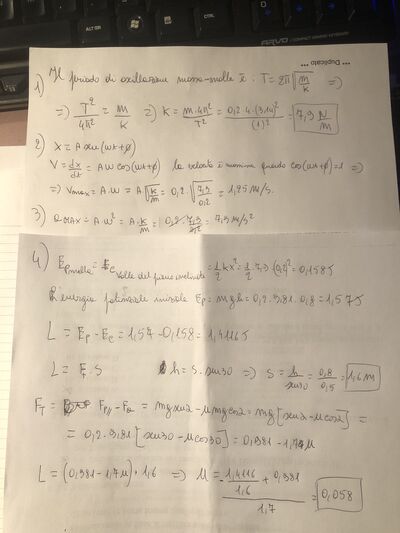 ALT GR
CTRL
ARVO
*** Duplicato ***
1) Il periodo di oscillazione massa-molla è: T = 2π√(m/k) =>
=> T²/4π² = m/k => K = m·4π²/T² = 0,2·4·(3,14)²/(1)² = 7,9 N/m
2) X = A sin(ωt+φ)
V = dx/dt = Aω cos(ωt+φ) la velocità è massima quando cos(ωt+φ)=1 =>
=> Vmax = A·ω = A√(k/m) = 0,2·√(7,9/0,2) = 1,25 M/s.
3) aMAX = A·ω² = A·k/m = 0,2·7,9/0,2 = 7,9 M/s²
4) Ep molla = Ec valle del piano inclinato = 1/2 kx² = 1/2·7,9·(0,2)² = 0,158J
L'energia potenziale iniziale Ep = mgh = 0,2·9,81·0,8 = 1,57J
L = Ep - Ec = 1,57 - 0,158 = 1,4116J
L = FT·S h = S·sin30 => S = h/sin30 = 0,8/0,5 = 1,6 m
FT = FP// - Fa = mg sin α - μmg cos α = mg[sin α - μcos α] =
= 0,2·9,81[sin30 - μcos30] = 0,981 - 1,7μ
L = (0,981 - 1,7μ)·1,6 => μ = (-1,4116/1,6 + 0,981)/1,7 = 0,058